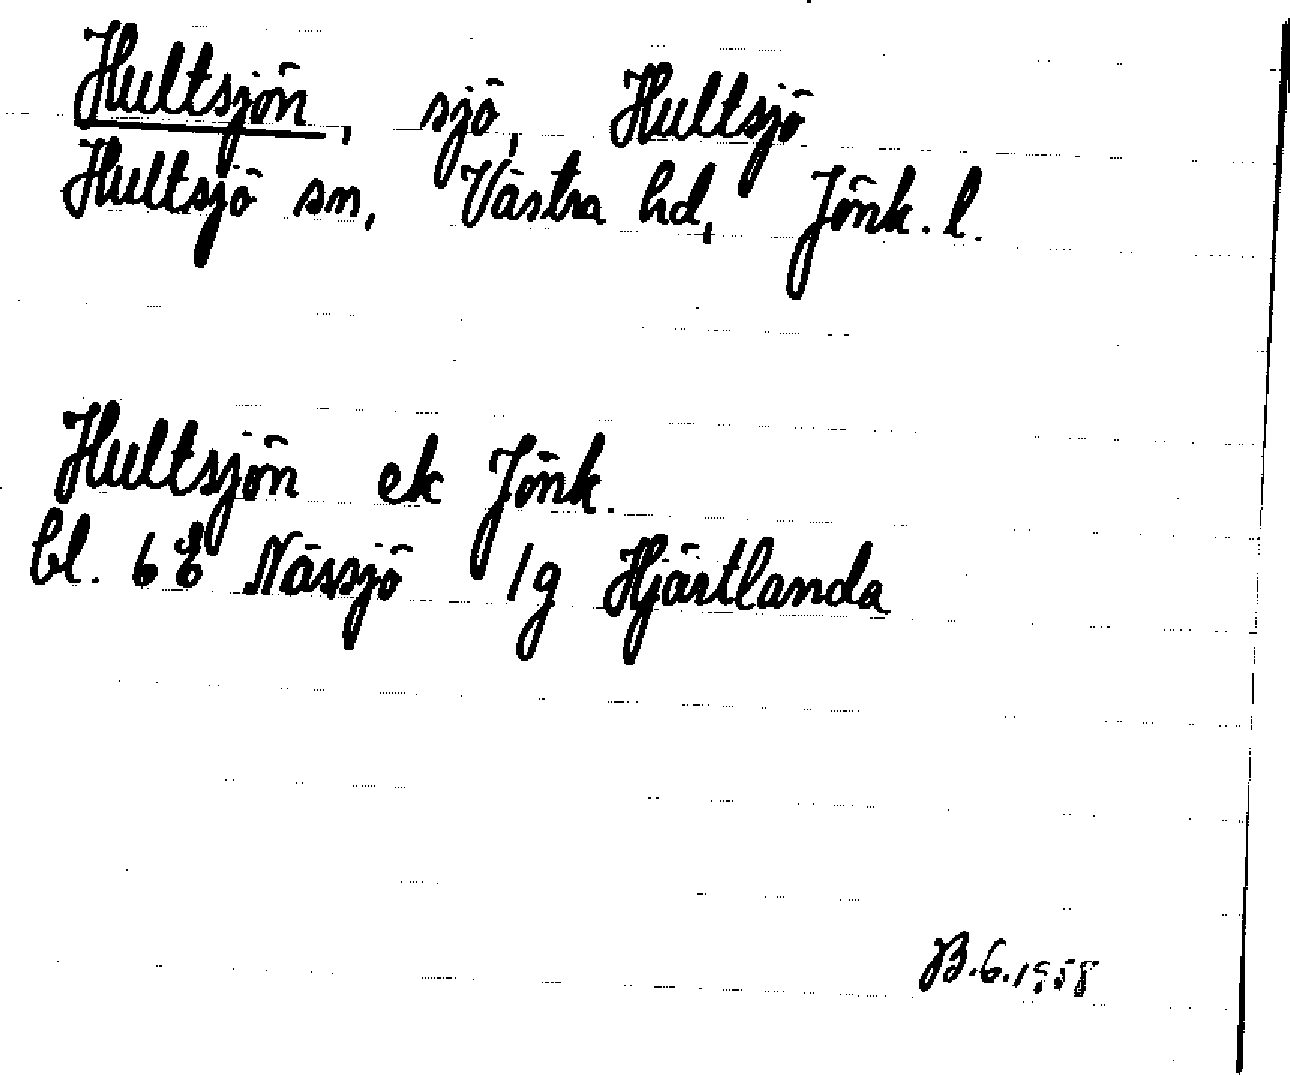 Hultsjön, sjö, Hultsjö
Hultsjö sn, Västra hd, Jönk. l.
Hultsjön ek Jönk.
bl. 6 E Nässjö 1g Hjärtlanda
B. 6. 1958